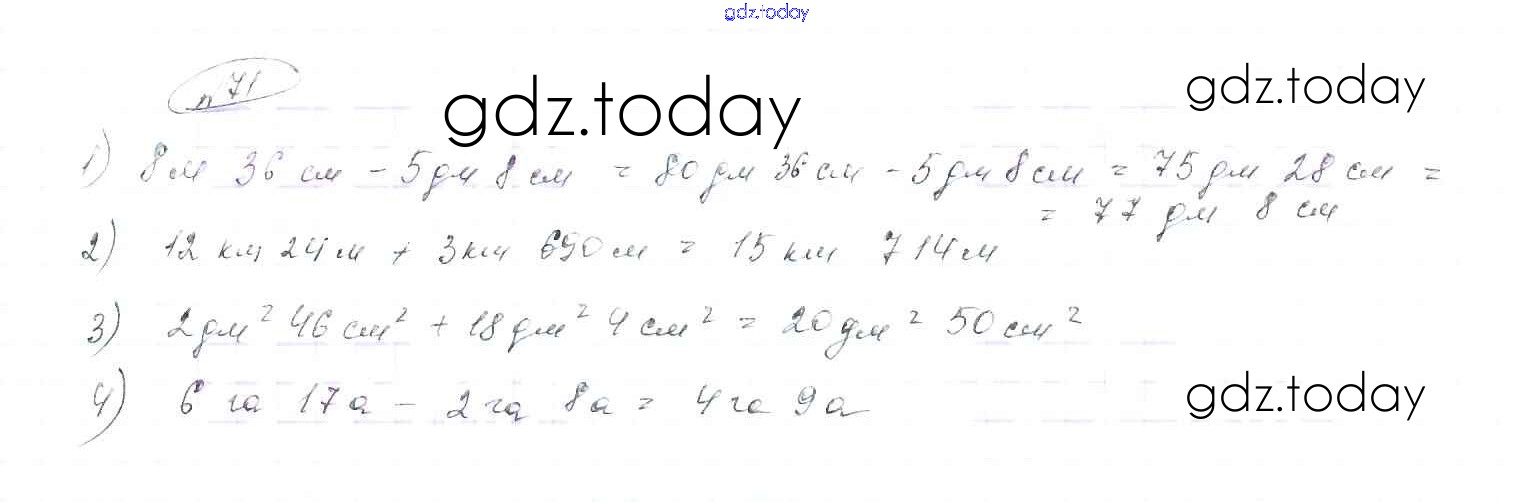 gdz.today
n 71
gdz.today
gdz.today
1) 8 м 36 см - 5 дм 8 см = 80 дм 36 см - 5 дм 8 см = 75 дм 28 см =
= 77 дм 8 см
2) 12 км 24 м + 3 км 690 м = 15 км 714 м
3) 2 дм² 46 см² + 18 дм² 4 см² = 20 дм² 50 см²
4) 6 га 17 а - 2 га 8 а = 4 га 9 а
gdz.today